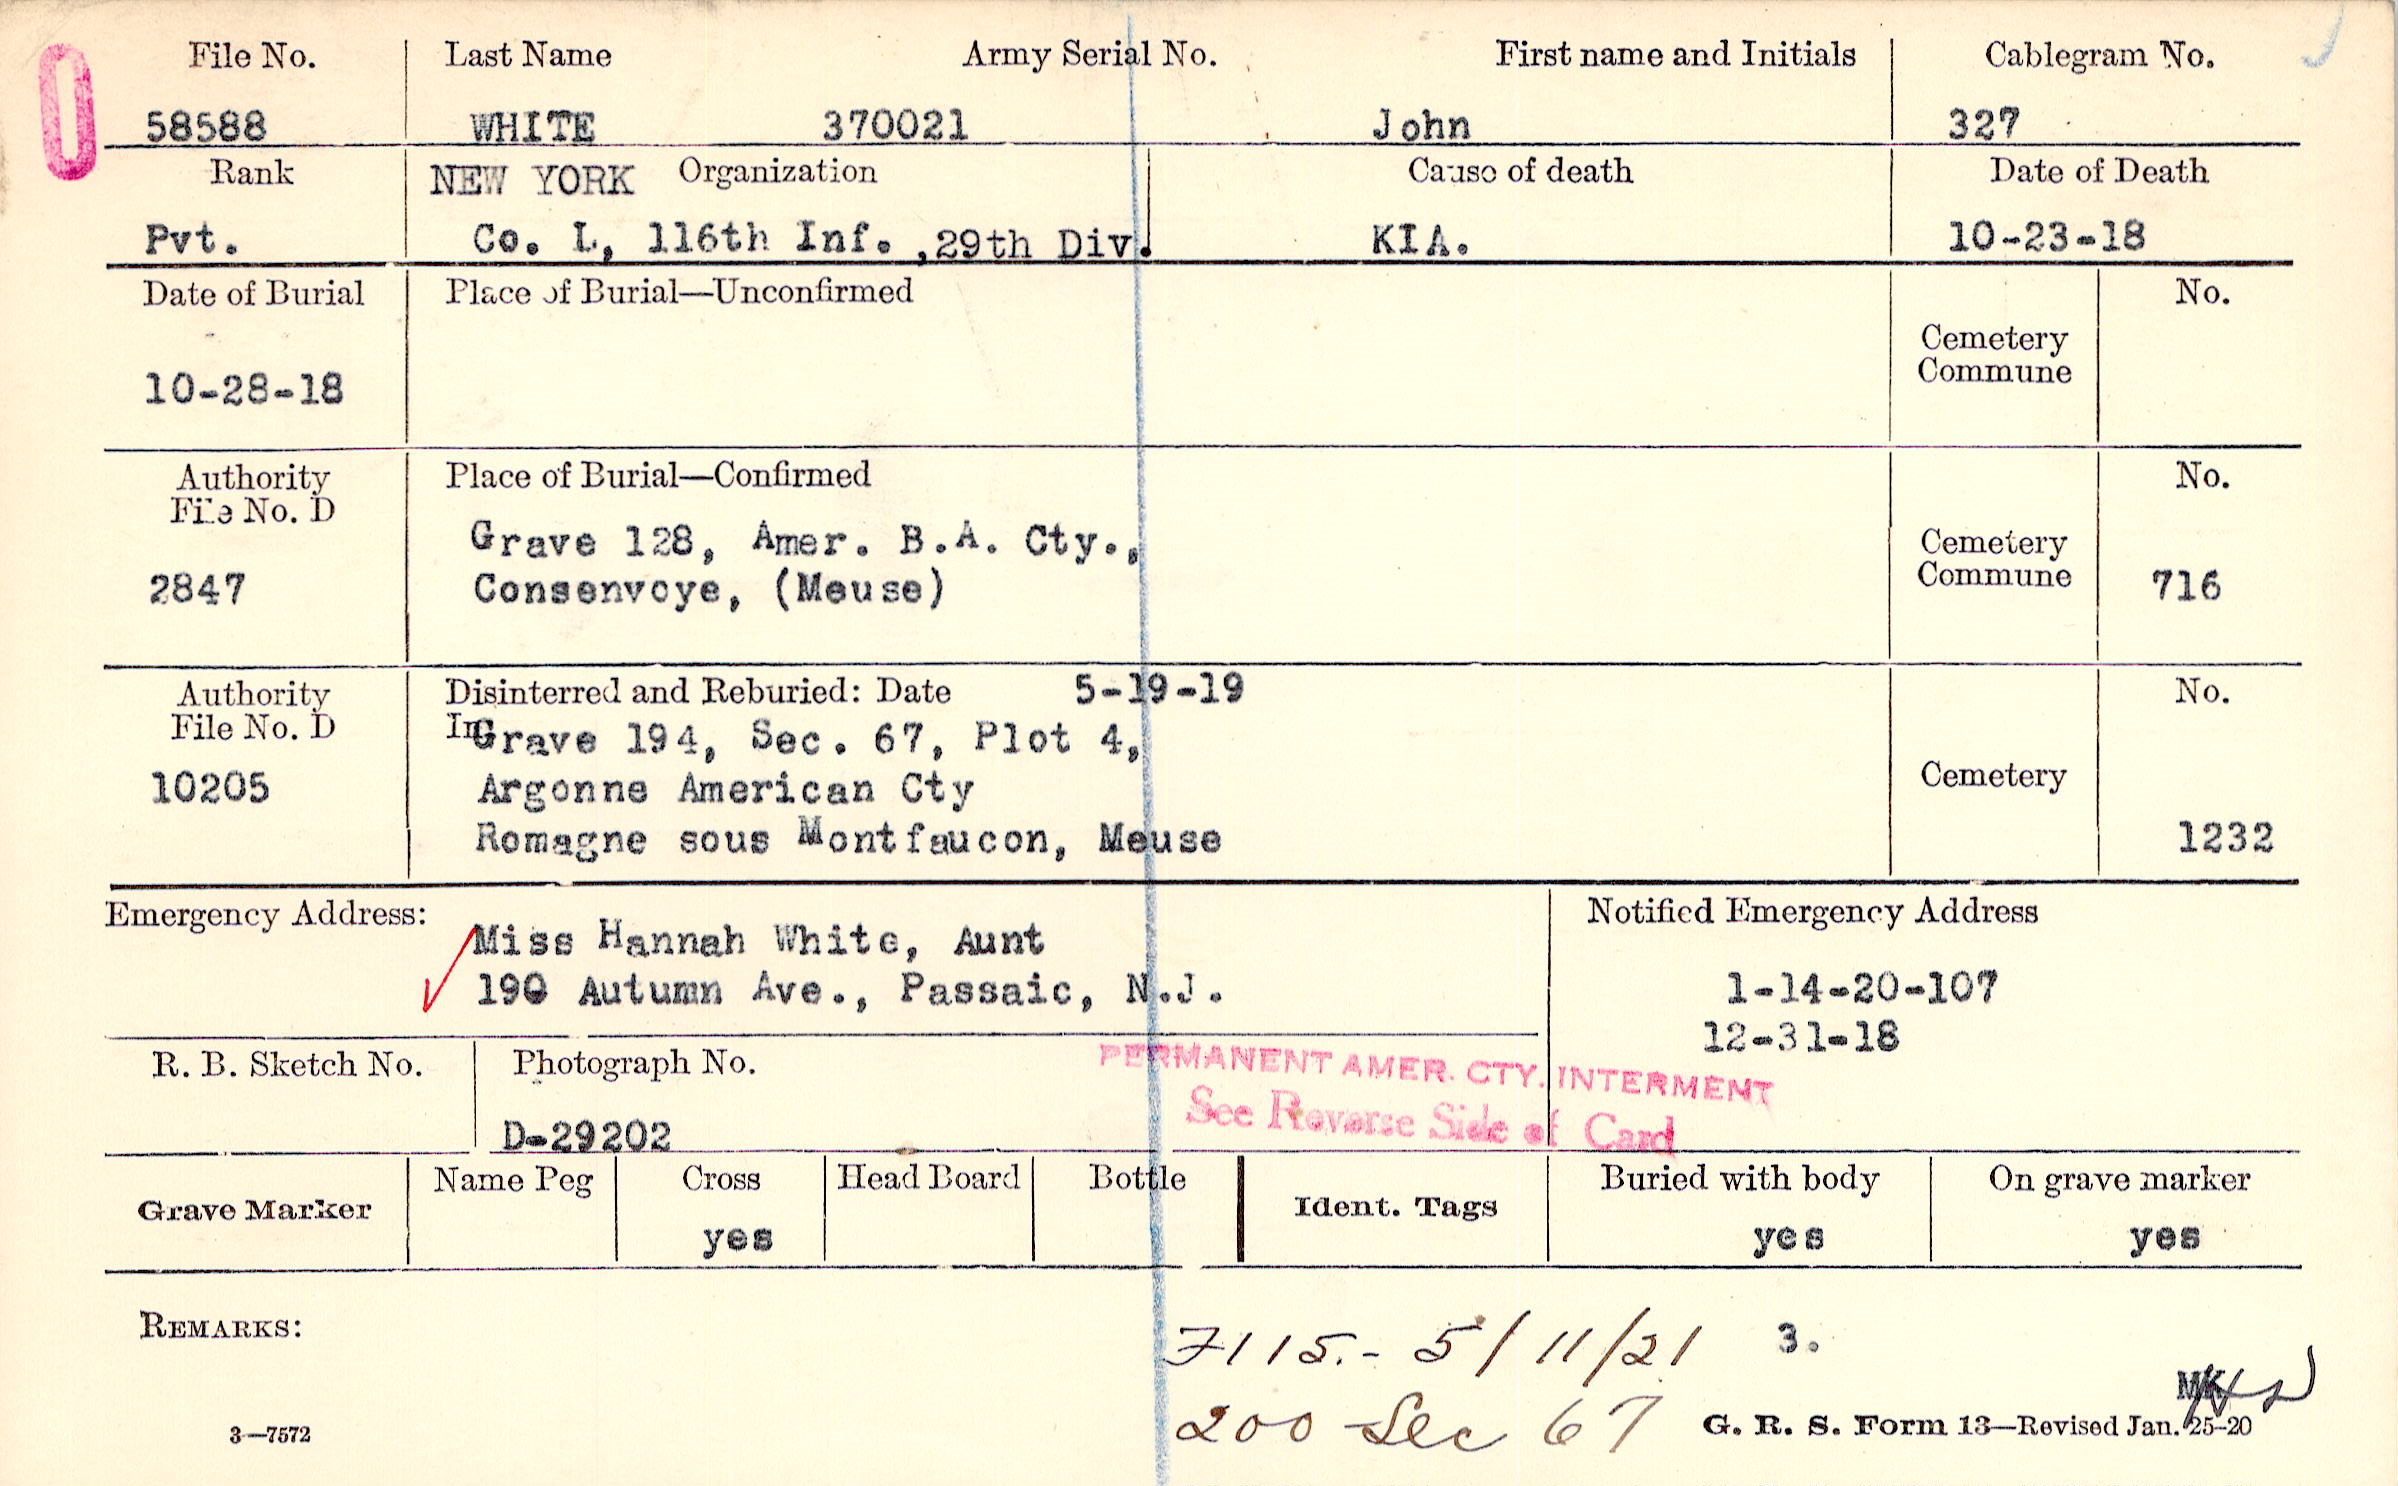 File No. Last Name Army Serial No. First name and Initials Cablegram No.
58588 WHITE 370021 John 327
Rank NEW YORK Organization Cause of death Date of Death
Pvt. Co. L, 116th Inf. ,29th Div. KIA. 10-23-18
Date of Burial Place of Burial—Unconfirmed No.
Cemetery
Commune
10-28-18
Authority Place of Burial—Confirmed No.
File No. D
Grave 128, Amer. B.A. Cty., Cemetery
2847 Consenvoye, (Meuse) Commune 716
Authority Disinterred and Reburied: Date 5-19-19 No.
File No. D In Grave 194, Sec. 67, Plot 4,
10205 Argonne American Cty Cemetery
Romagne sous Montfaucon, Meuse 1232
Emergency Address: Notified Emergency Address
Miss Hannah White, Aunt
190 Autumn Ave., Passaic, N.J. 1-14-20-107
12-31-18
R. B. Sketch No. Photograph No. PERMANENT AMER. CTY. INTERMENT
See Reverse Side of Card
D-29202
Grave Marker Name Peg Cross Head Board Bottle Ident. Tags Buried with body On grave marker
yes yes yes
REMARKS: 7115.- 5/11/21 3.
MK
200 Sec 67
3—7572 G. R. S. Form 13—Revised Jan. 25-20